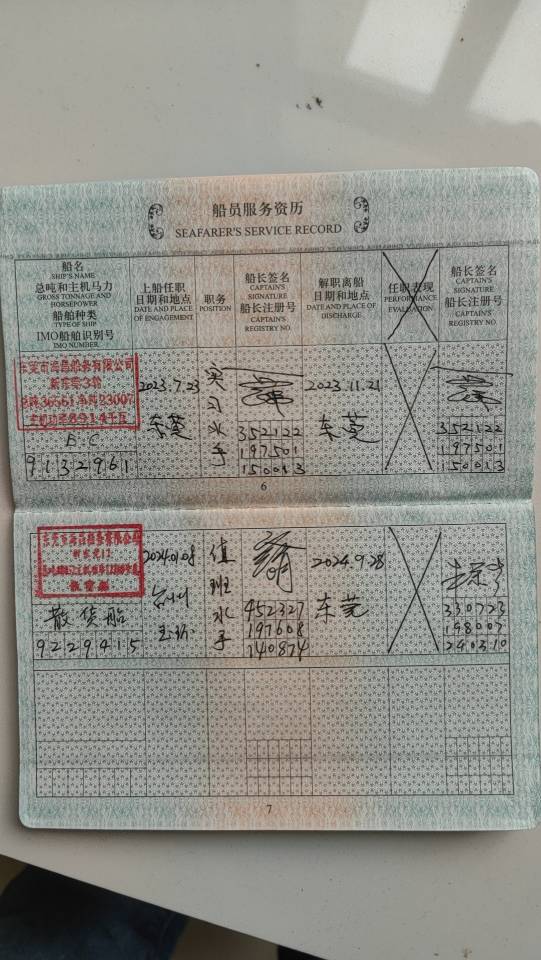 船员服务资历
SEAFARER'S SERVICE RECORD
船名
SHIP'S NAME
总吨和主机马力
GROSS TONNAGE AND
HORSEPOWER
船舶种类
TYPE OF SHIP
IMO船舶识别号
IMO NUMBER
上船任职
日期和地点
DATE AND PLACE
OF ENGAGEMENT
职务
POSITION
船长签名
CAPTAIN'S
SIGNATURE
船长注册号
CAPTAIN'S
REGISTRY NO.
解职离船
日期和地点
DATE AND PLACE OF
DISCHARGE
任职表现
PERFORMANCE
EVALUATION
船长签名
CAPTAIN'S
SIGNATURE
船长注册号
CAPTAIN'S
REGISTRY NO.
东莞市海昌船务有限公司
新东莞3轮
总吨36561净吨23007
主机功率8914千瓦
B.C
9132961
2023.7.23
东莞
实习水手
352122
197501
150013
2023.11.21
东莞
352122
197501
150013
6
东莞市海昌船务有限公司
散货船
散货船
9229415
2024.01.08
台州
值班水手
452327
197608
140874
2024.9.28
东莞
330723
198007
240310
7